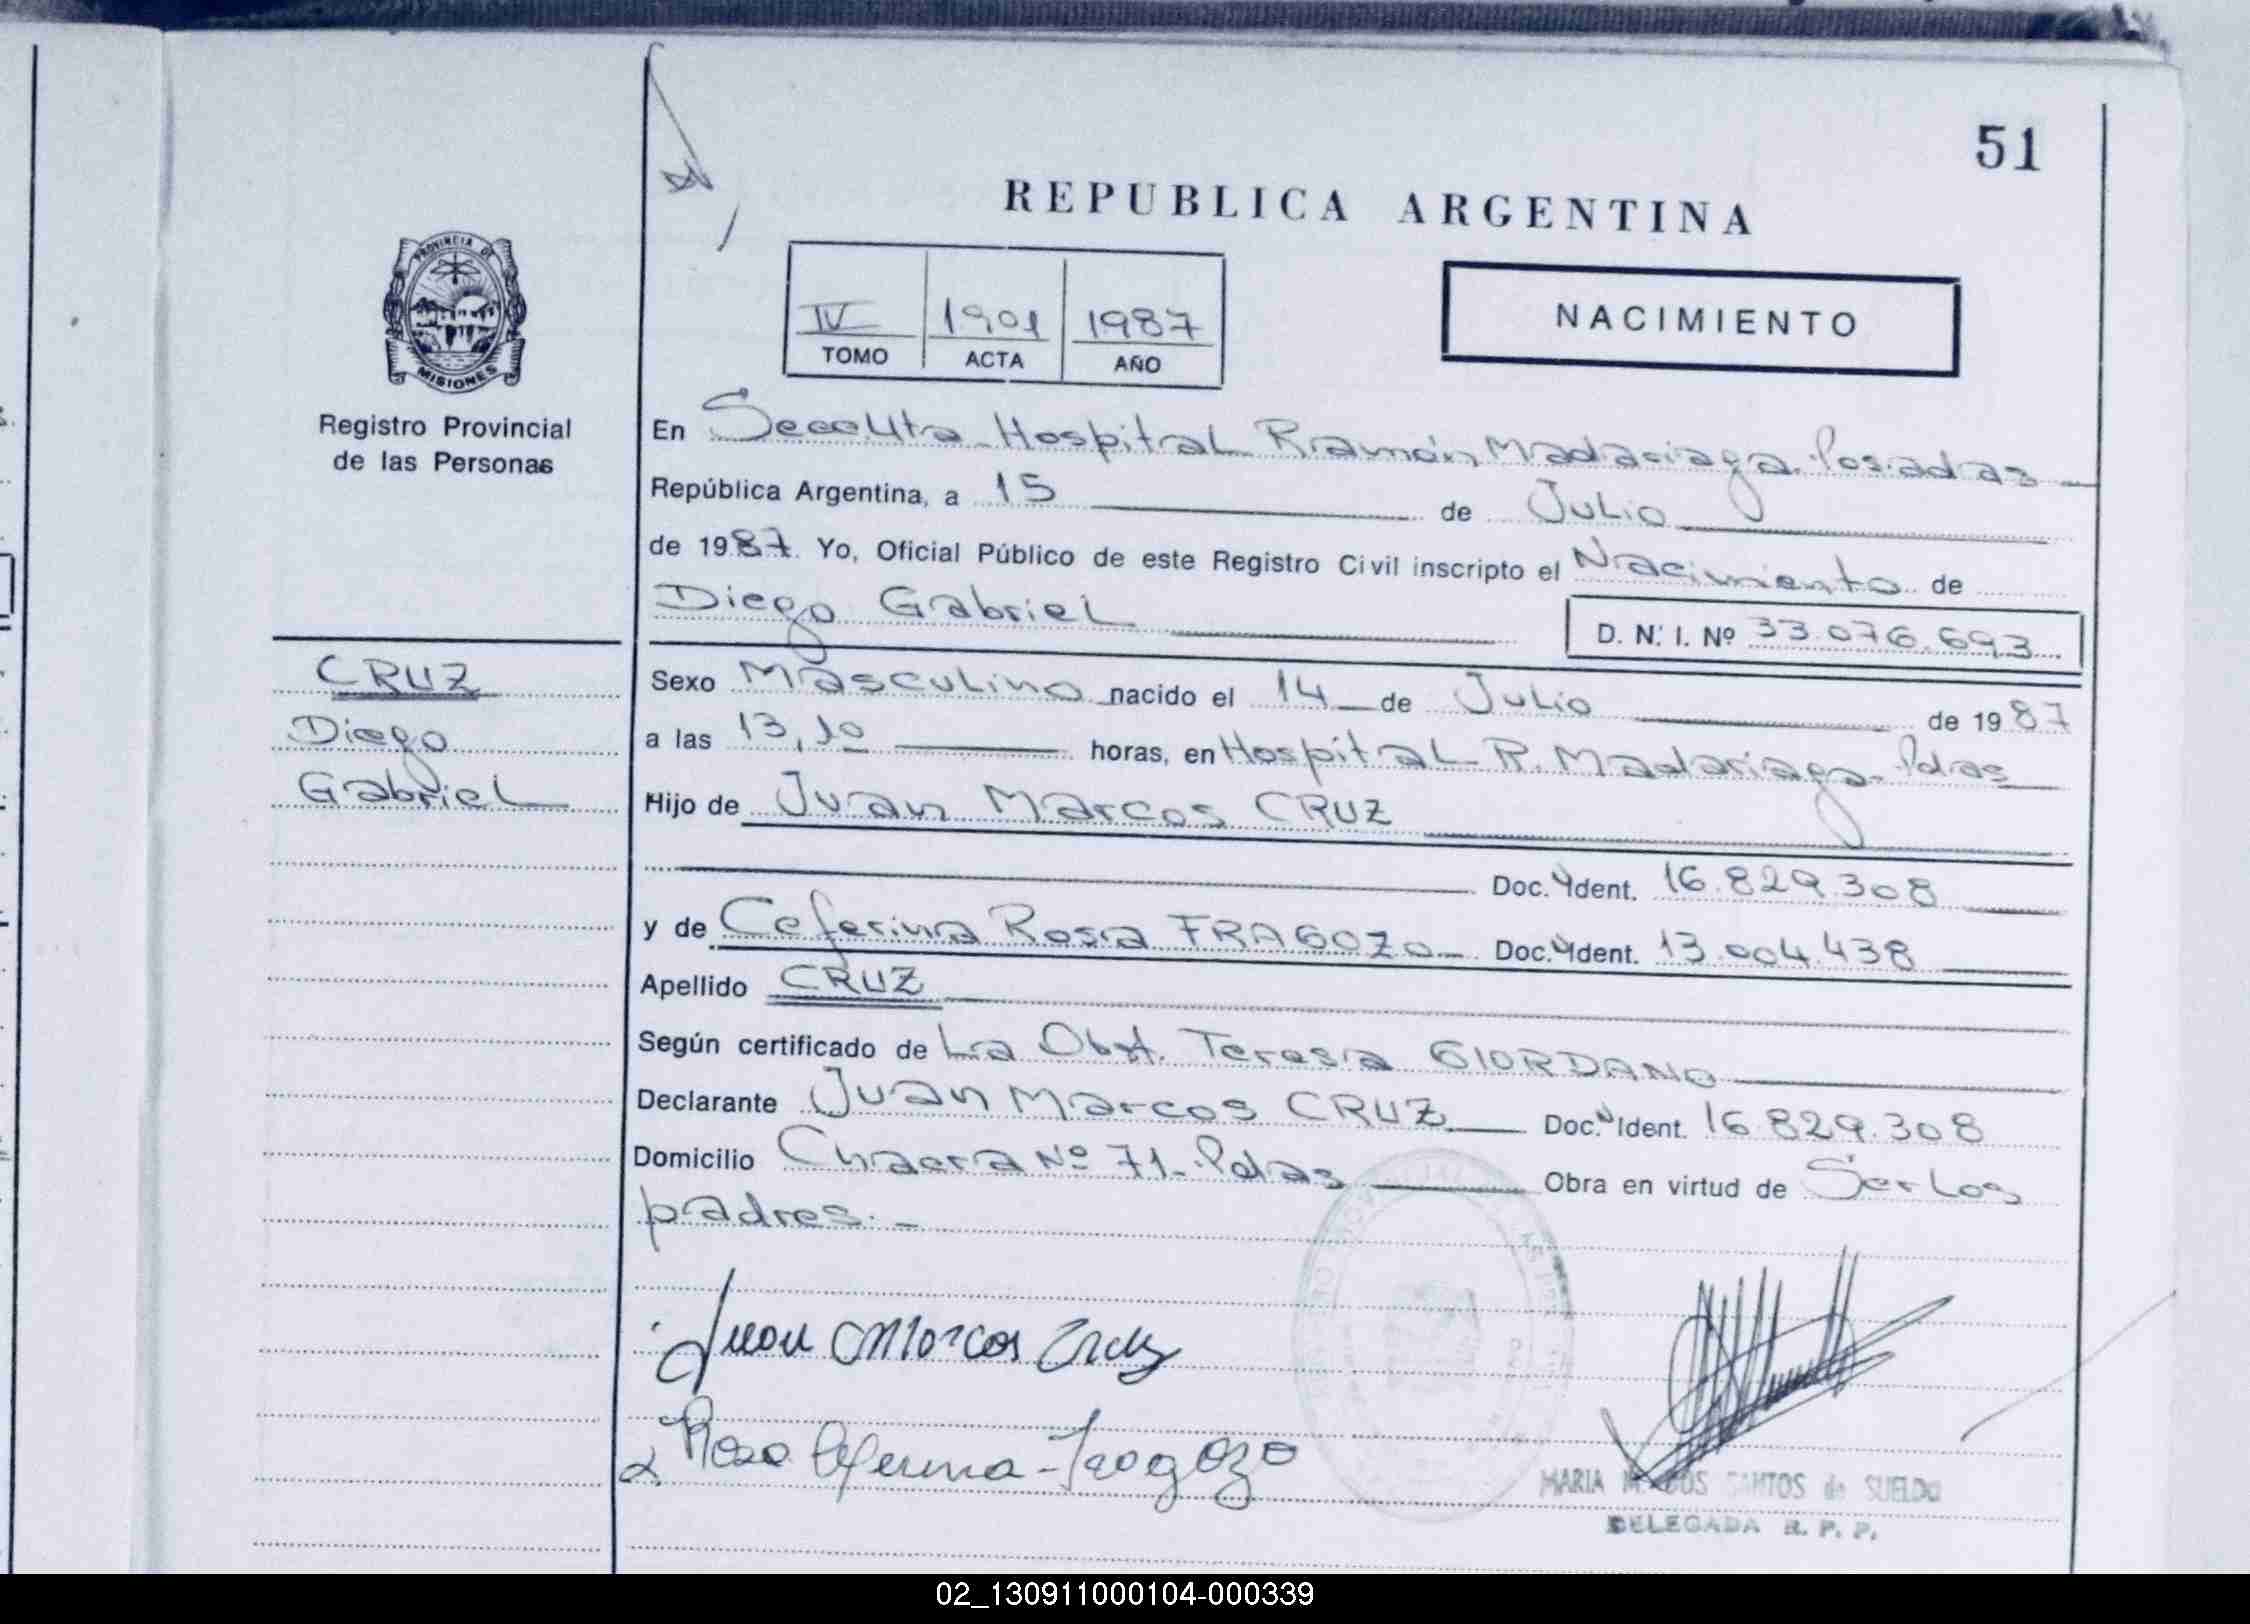 51
REPUBLICA ARGENTINA
PROVINCIA DE
MISIONES
Registro Provincial
de las Personas
IV 1901 1987
TOMO ACTA AÑO
NACIMIENTO
En Hospital Ramón Madariaga. Posadas
República Argentina, a 15 de Julio
de 1987. Yo, Oficial Público de este Registro Civil inscripto el Nacimiento de
Diego Gabriel
D. N. I. Nº 33.076.693
CRUZ
Diego
Gabriel
Sexo Masculino nacido el 14 de Julio de 1987
a las 13,10 horas, en Hospital R. Madariaga. Pdas
Hijo de Juan Marcos CRUZ
Doc. Ident. 16.829.308
y de Ceferina Rosa FRAGOZO Doc. Ident. 13.004.438
Apellido CRUZ
Según certificado de La Obst. Teresa GIORDANO
Declarante Juan Marcos CRUZ Doc. Ident. 16.829.308
Domicilio Chacra Nº 71-Pdas Obra en virtud de Ser los
padres.-
Juan Marcos Cruz
Rosa Ceferina-Fragozo
MARIA SANTOS de SUELDO
DELEGADA R. P. P.
02_130911000104-000339